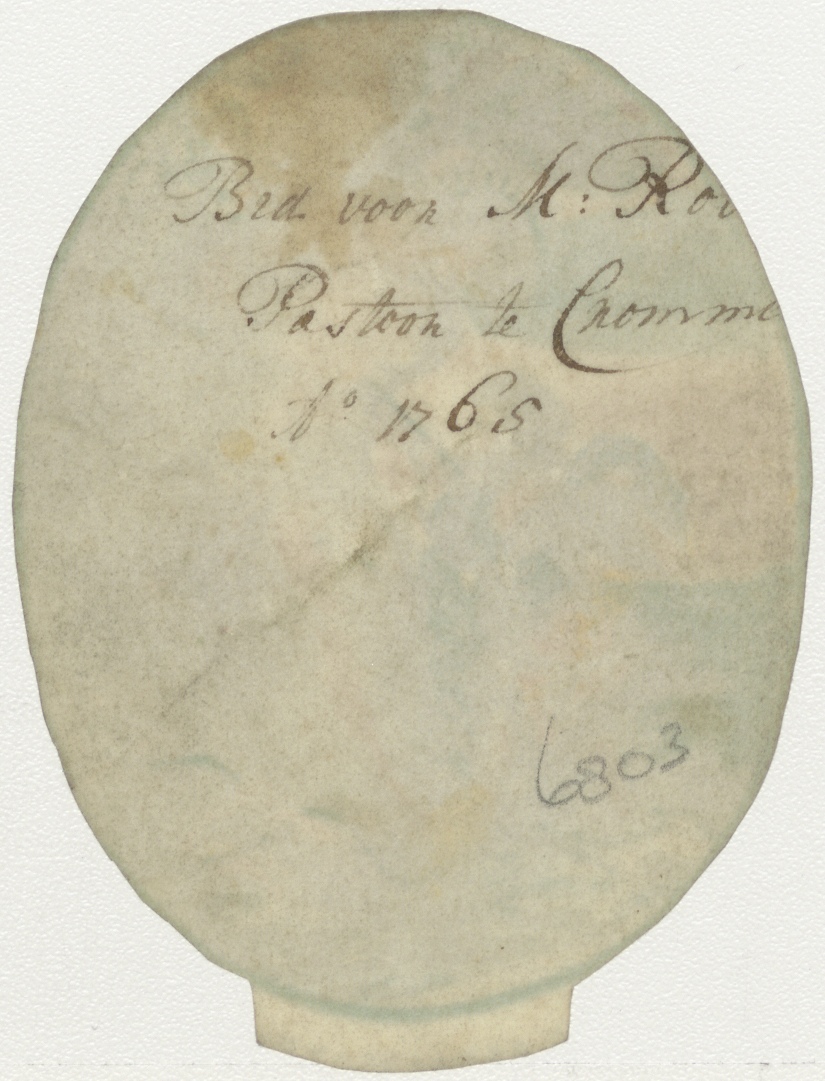 Bid voor M: Rov
Pastoor te Cromme
Aº 1765
6803